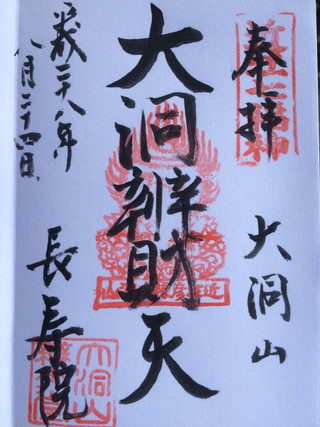 奉拝
大洞山
大洞辨財天
平成二十八年
八月二十四日
長寿院
大洞山